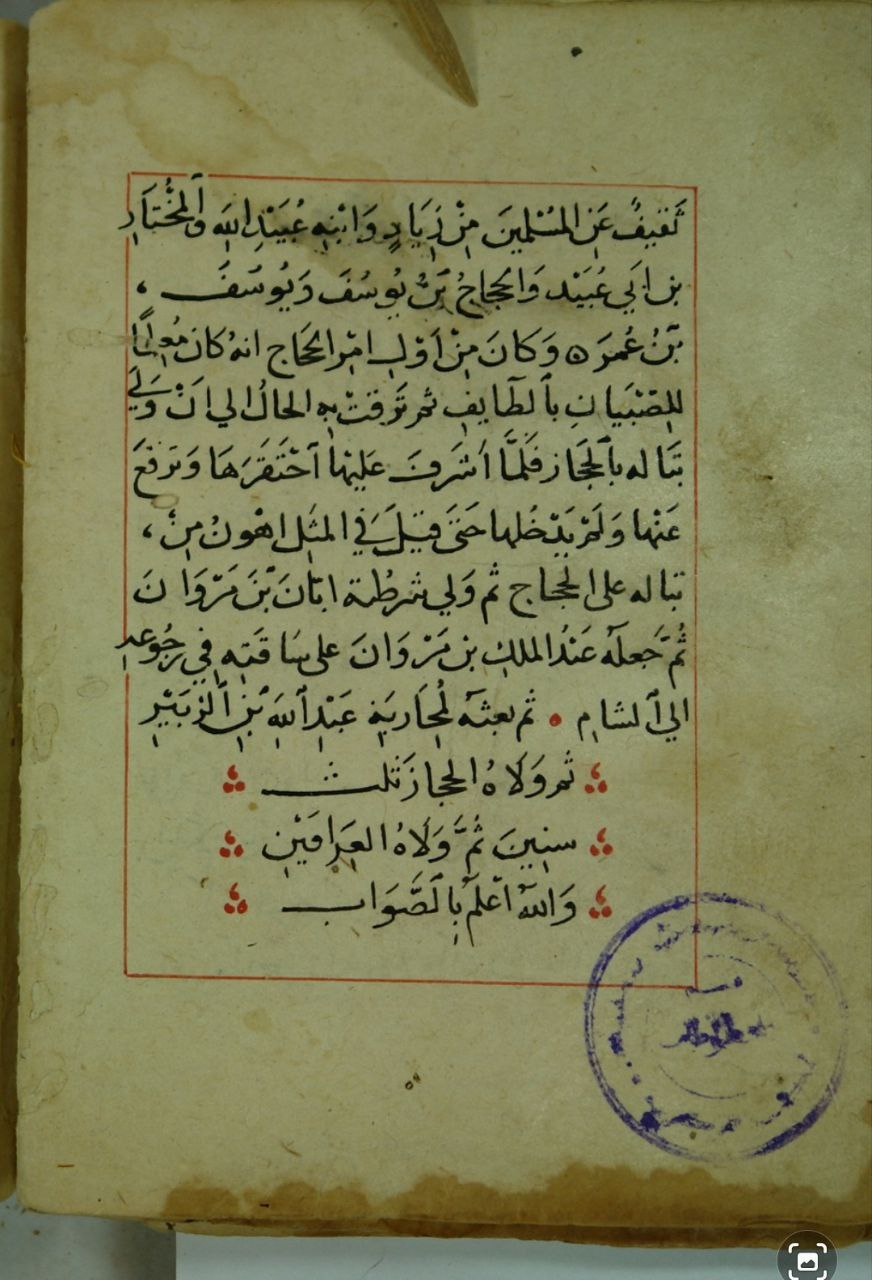 ثَقيفٌ عَنِ المُسْلمينَ مِنْ زِيَادٍ وَابْنِهِ عُبَيْدِ اللهِ وَالمُخْتَارِ
بن ابَي عُبَيْد وَالحجاجُ بْنُ يُوسُفَ وَيُوسَفَ ،
بْنُ عُمَرَ ٥ وَكَانَ مِنْ اَوَّلِ امْرِ الحَجاج انهُ كانَ مُعَلِّمًا
للِصّبْيَانِ بِالطَايفِ ثم تَرقتْ بِهِ الحَالُ الي اَنْ وَليَ
تبَاله بالحجَاز فَلَمَّا اَشرَفَ عَليْهَا اَحْتَقَرَهَا وَترفعَ
عَنْها وَلَمْ يَدْخُلها حَتَى قيلَ في المثَل اهْونُ مِنْ ،
تباله على الحجاج ثم وَلي شرطة ابَانَ بْنَ مَرْوَانَ
ثُمَّ جَعلَهُ عَبْدُ الملكِ بن مَرْوَانَ على سَاقَتِهِ في رجُوعهِ
الي الشامِ . ثم بعثه لمُحَاربَةِ عَبْدِ اللهِ بْنِ الزبَيْرِ
ثم وَلَاهُ الحجازَ ثلث
سِنِينَ ثُمَّ وَلَاهُ العِرَاقَيْنِ
وَاللهُ اعْلمُ بِالصَّوَابِ